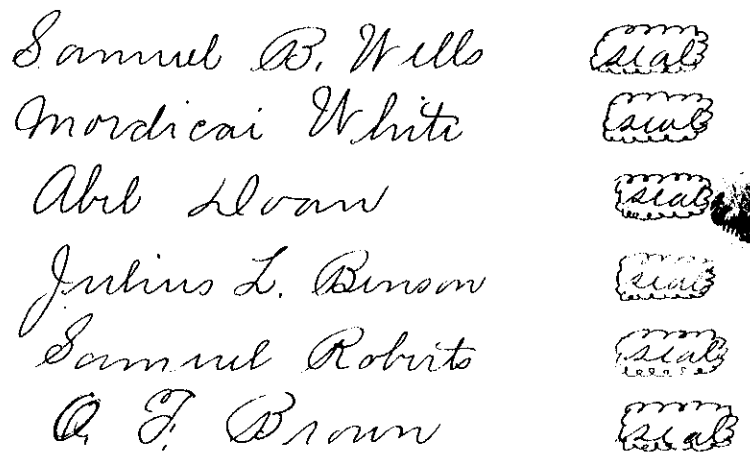 Samuel B. Wells seal
Mordicai White seal
Abel Doan seal
Julius L. Benson seal
Samuel Roberts seal
O. F. Brown seal